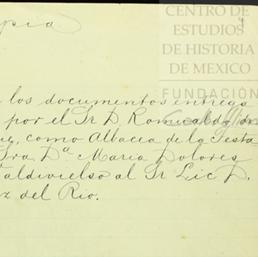 CENTRO DE
ESTUDIOS
DE HISTORIA
DE MEXICO
FUNDACIÓN
los documentos entrega
por el Sr D. Romualdo
como Albacea de la Testa
Sra. Dª Maria Dolores
Valdivielso al Sr Lic D.
z del Rio.